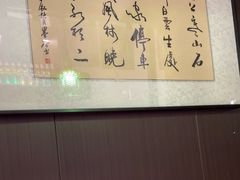 上寒山石
白雲生處
家停車
楓林晚
紅於二